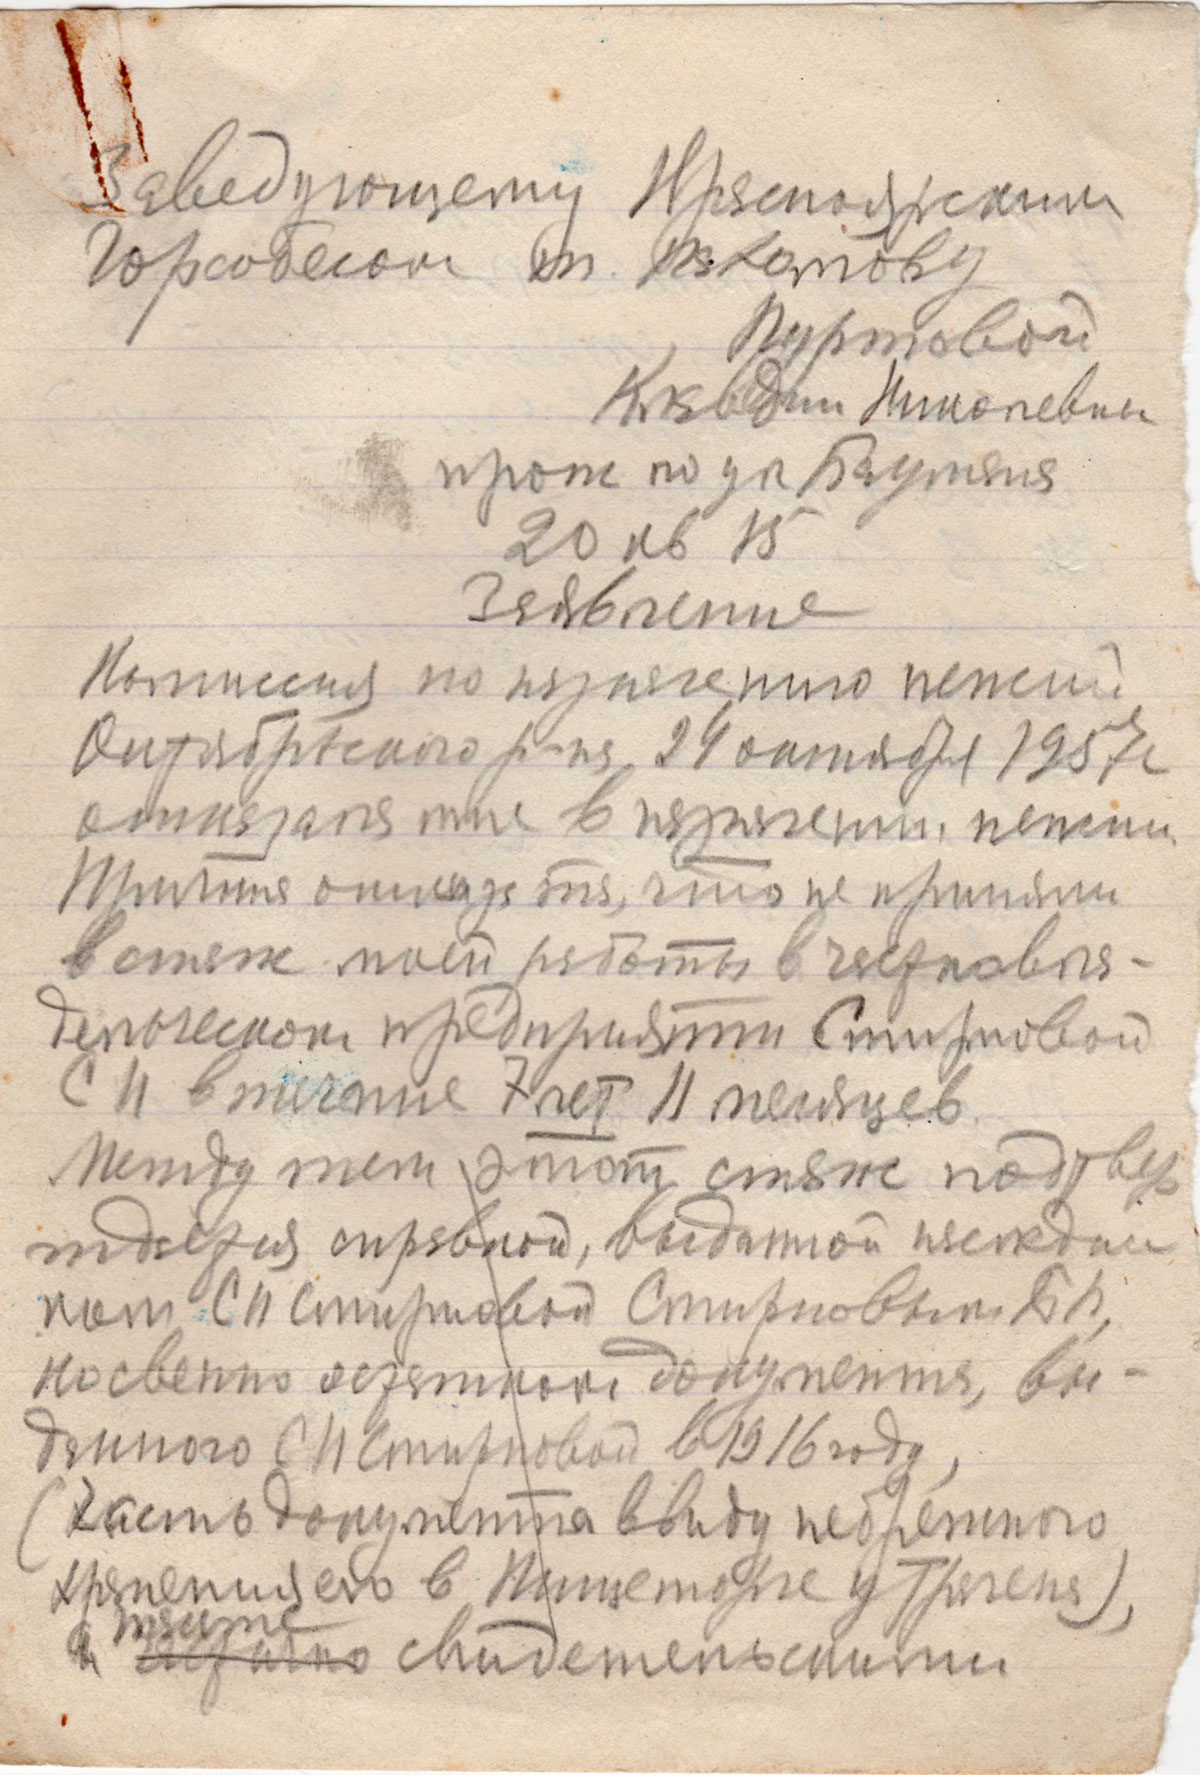 Заведующему Красноярским
Горсобесом т.
Пуртовой
Клавдии Николевны
прож по ул Баумана
20 кв 15
Заявление
Комиссия по назначению пенсии
Октябрьского р-на 24 октября 1957 г
отказала мне в назначении пенсии
Прития отказа та, что не приняли
в стаж моей работы в частновла-
дельческом предприятии Смирновой
С Н в течние 7 лет 11 месяцев.
Между тем этот стаж подтвер
ждается справкой, выданной наследни
ком С Н Смирновой Смирновым
косвенно остатком документа, вы-
данного С Н Смирновой в 1916 году,
(Часть документа ввиду небрежного
хранения его в Пищеторге утрачена),
а также свидетельскими